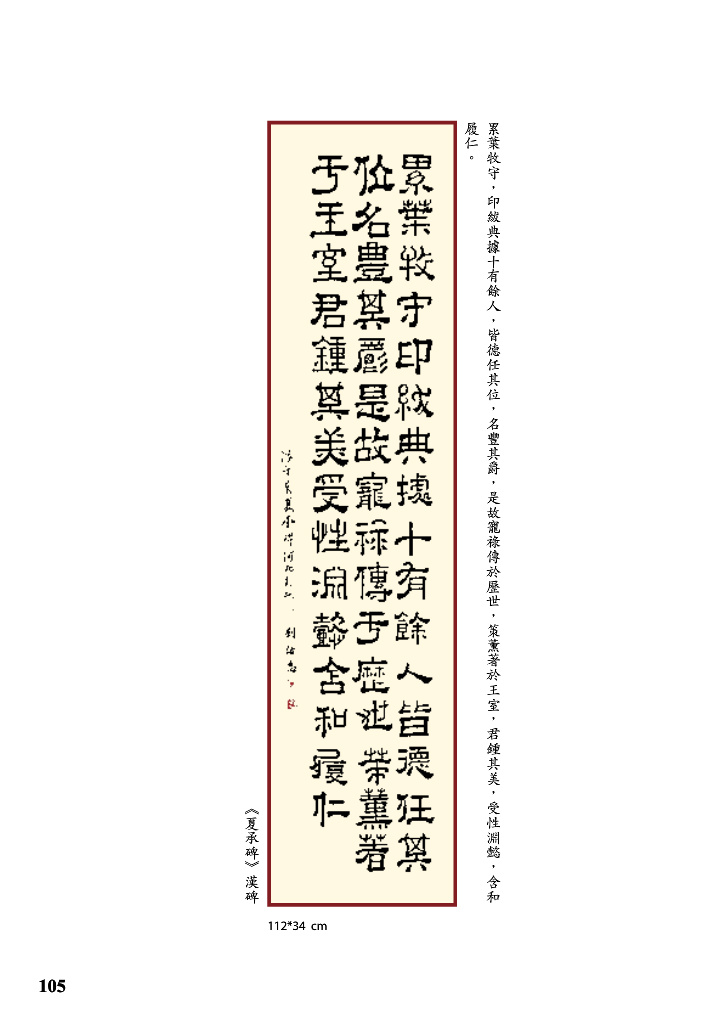 累葉牧守，印紱典據十有餘人，皆德任其位，名豐其爵，是故寵祿傳於歷世，策薰著於王室，君鍾其美，受性淵懿，含和
履仁。
累葉牧守印紱典據十有餘人皆德任其
位名豊其爵是故寵祿傳于歷世策薰著
于王室君鍾其美受性淵懿含和履仁
《夏承碑》漢碑
112*34 cm
105